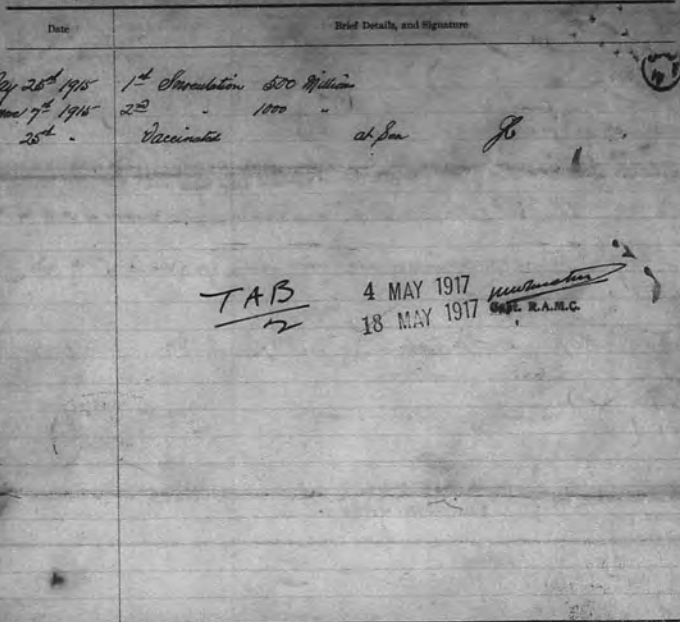 Date Brief Details, and Signature
25th 1915 1st Inoculation 500 Million
7th 1915 2nd " 1000 "
25th " Vaccinated at Sea
TAB 4 MAY 1917
2 18 MAY 1917 Capt. R.A.M.C.